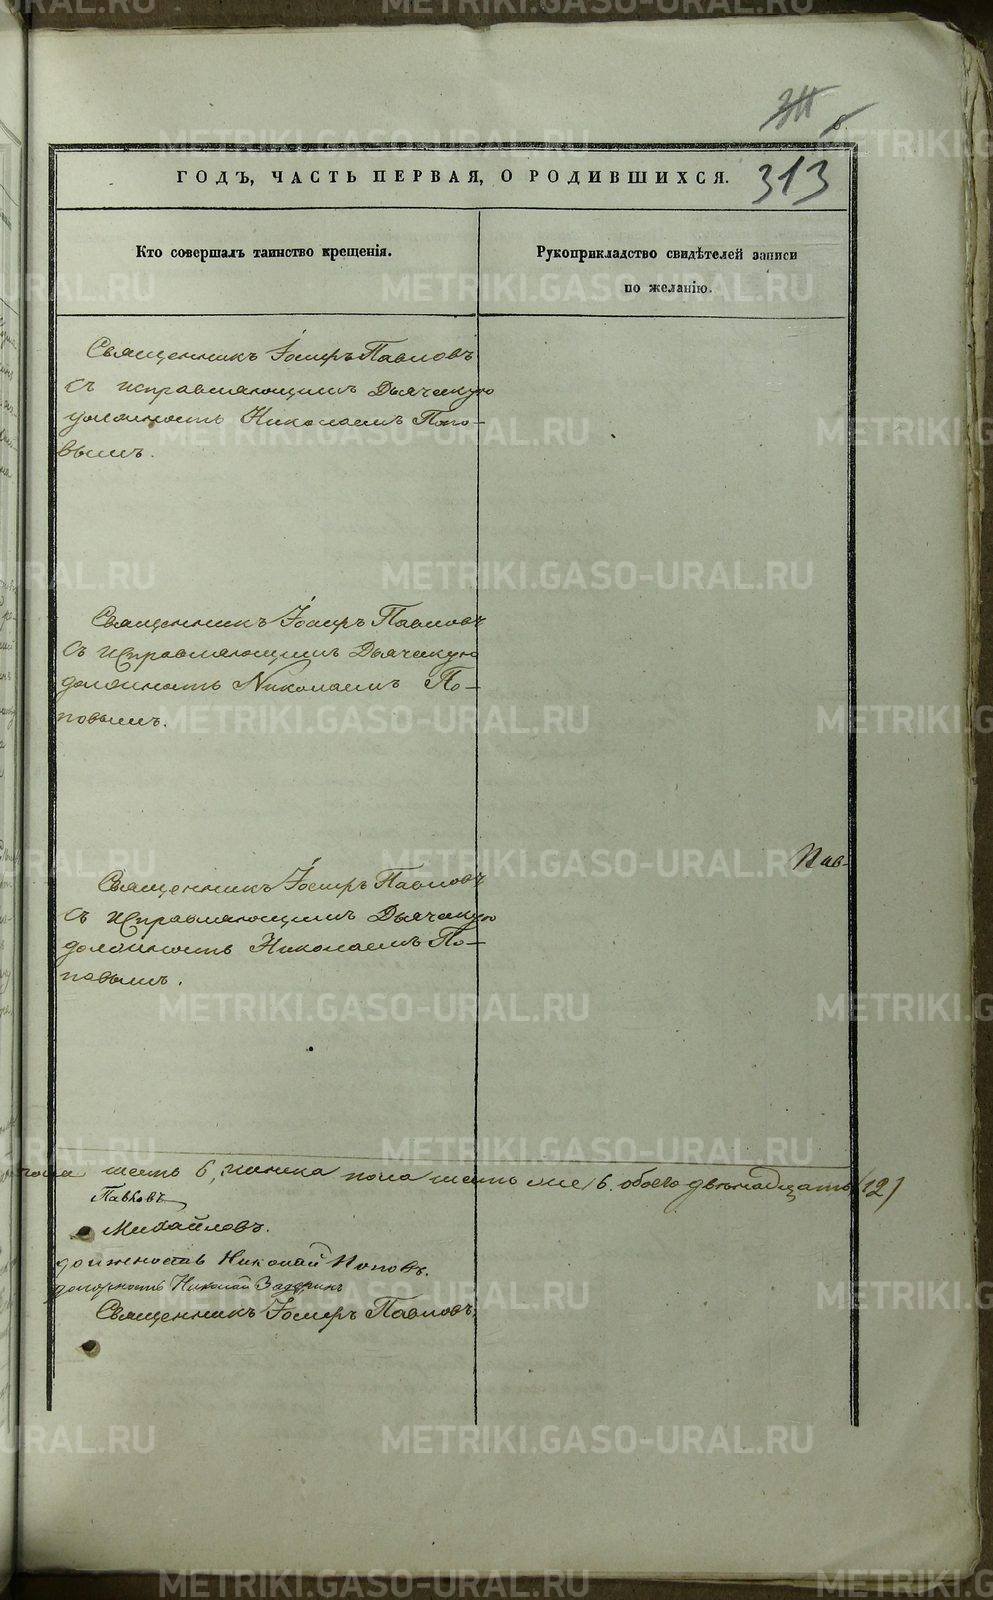 313
ГОДЪ, ЧАСТЬ ПЕРВАЯ, О РОДИВШИХСЯ.
Кто совершалъ таинство крещенія.
Рукоприкладство свидѣтелей записи
по желанію.
Священникъ Іосифъ Павловъ
съ исправляющимъ Дьяческую
должность Николаемъ Попо-
вымъ.
Священникъ Іосифъ Павловъ
съ исправляющимъ Дьяческую
должность Николаемъ По-
повымъ.
Пав-
Священникъ Іосифъ Павловъ
съ исправляющимъ Дьяческую
должность Николаемъ По-
повымъ.
пола шесть 6, женска пола шесть же 6. обоего двѣнадцать (12)
Павловъ
Михайловъ.
должность Николай Поповъ.
должность Николай
Священникъ Іосифъ Павловъ.
METRIKI.GASO-URAL.RU